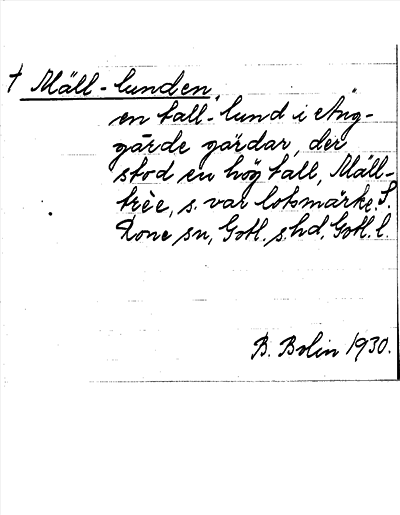 † Mäll-lunden,
en tall-lund i Äng-
gärde gärdar, der
stod en hög tall, Mäll-
trèe, s. var lotsmärke. S.
Rone sn, Gotl. s. hd. Gotl. l.
B. Bolin 1930.